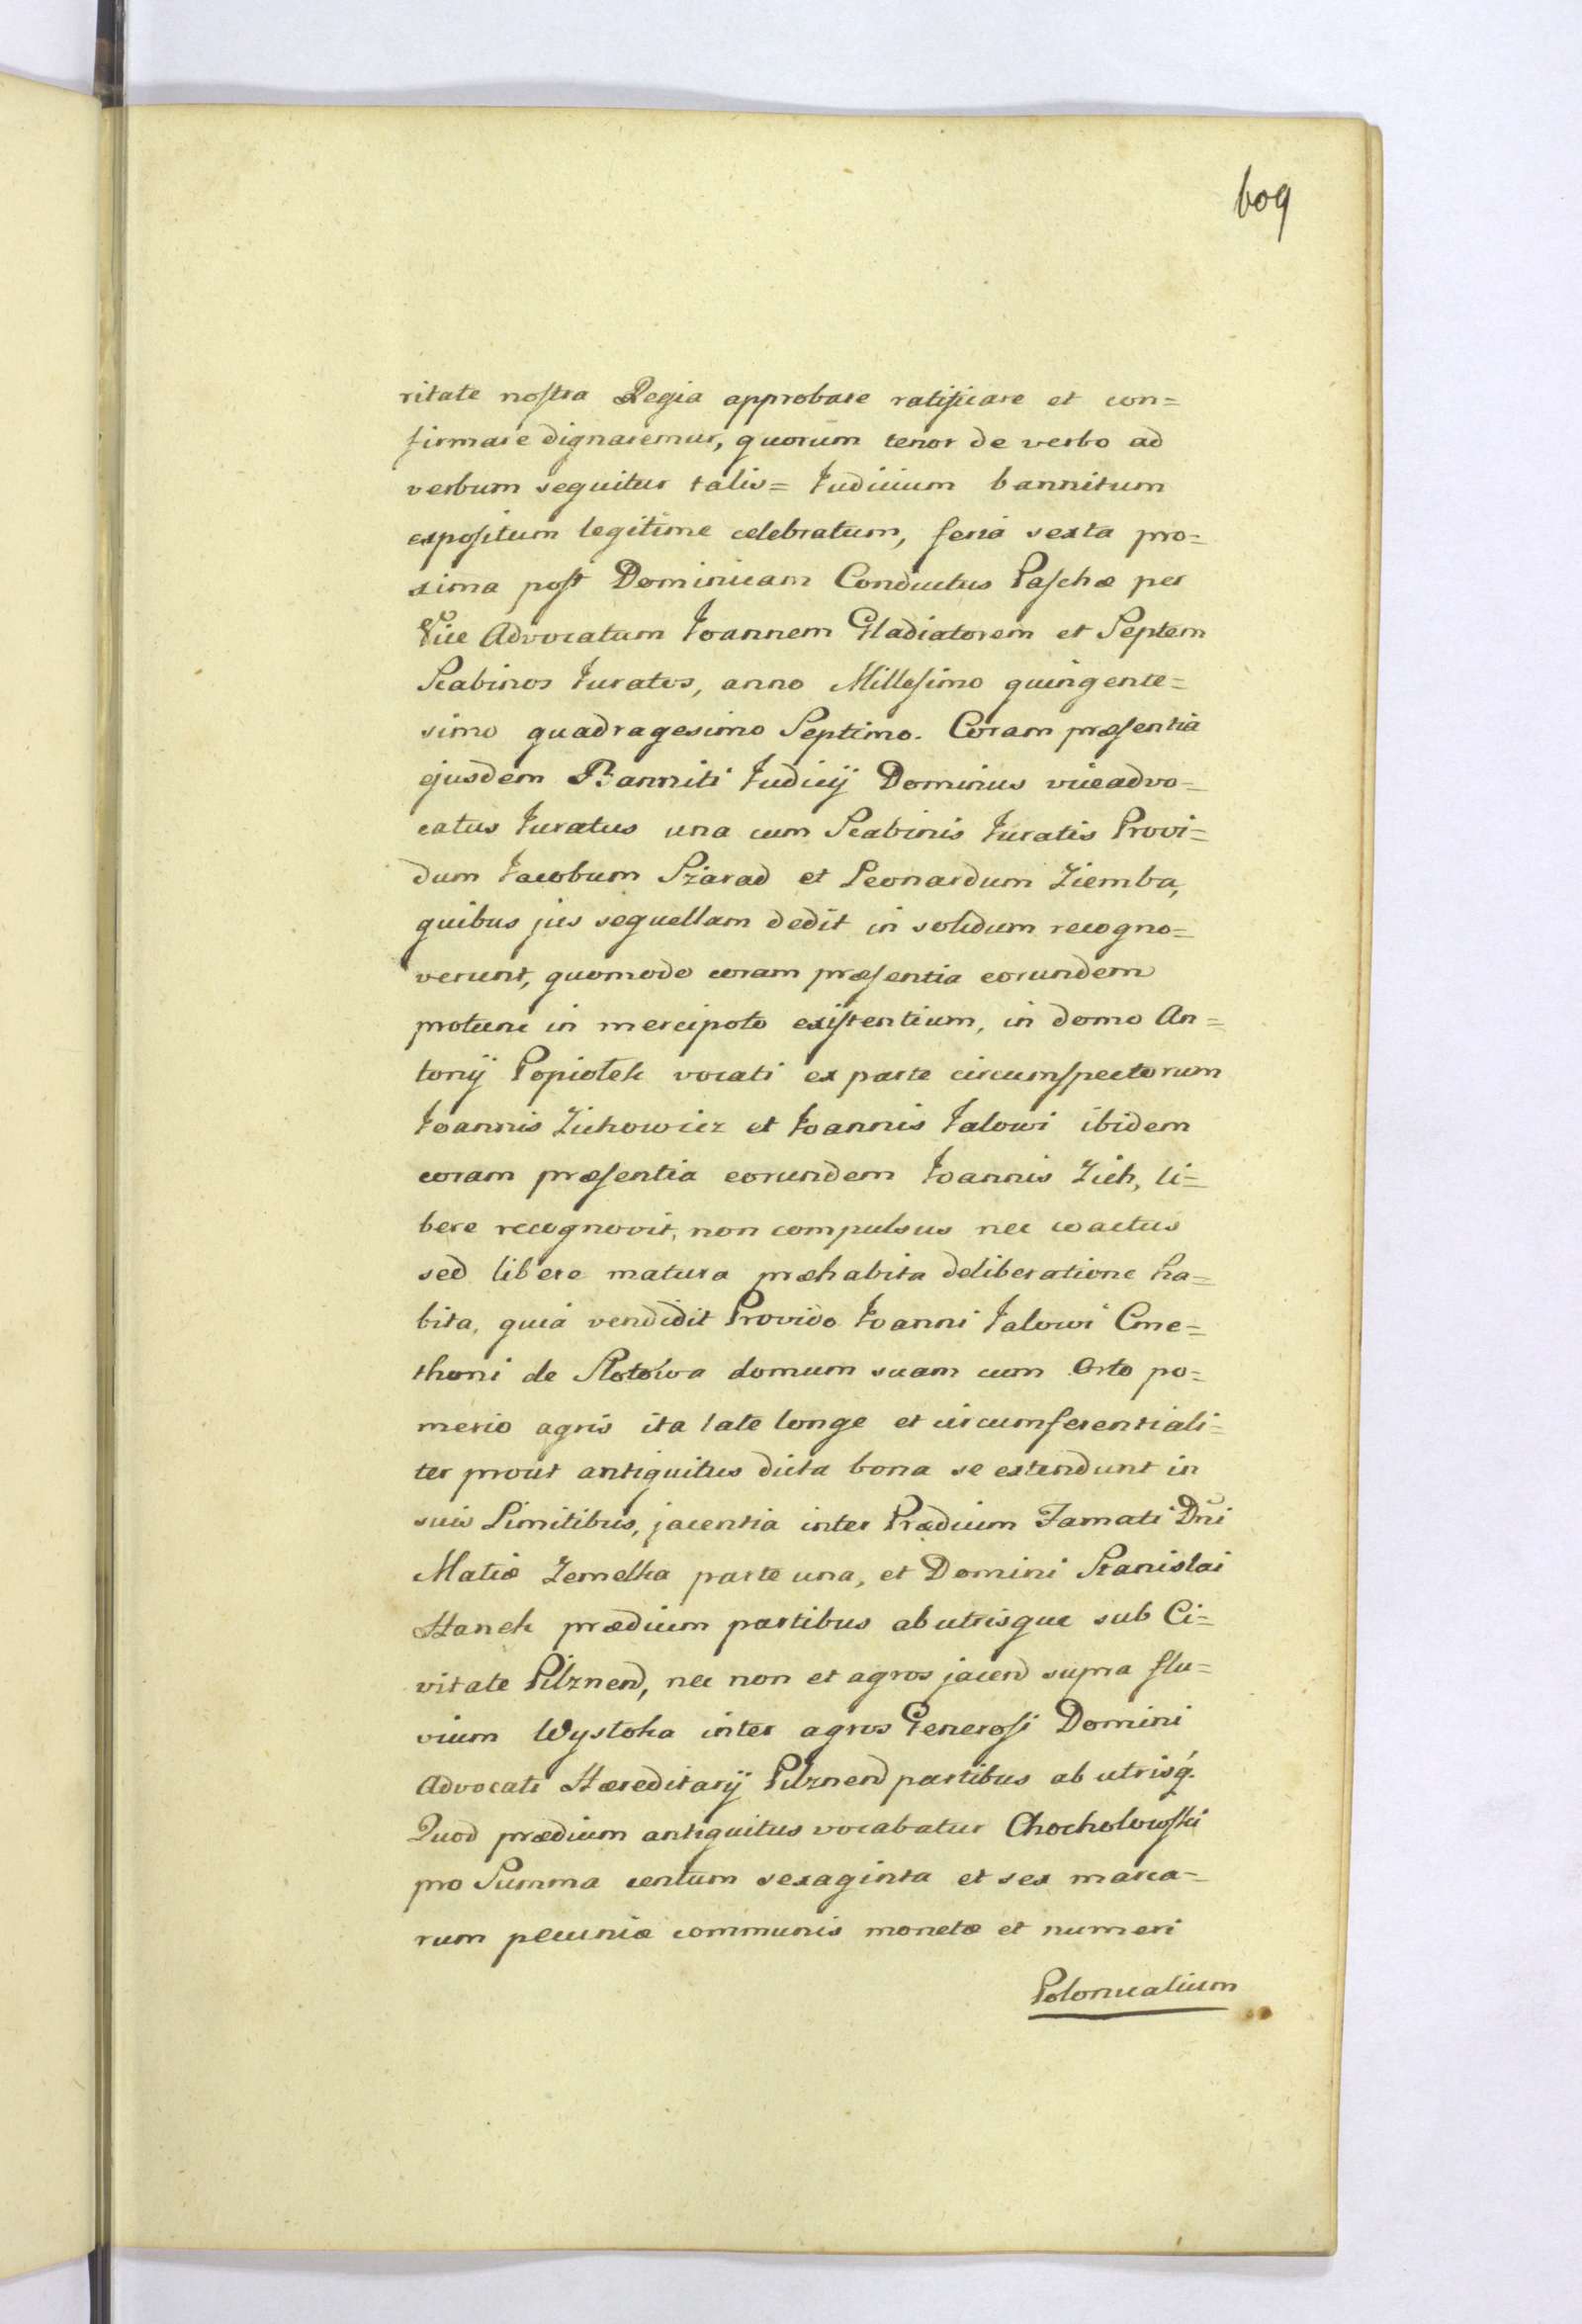 609
ritate nostra Regia approbare ratificare et con=
firmare dignaremur, quorum tenor de verbo ad
verbum sequitur talis= Iudicium bannitum
expositum legitime celebratum, feria sexta pro=
xima post Dominicam Conductus Paschæ per
Vice Advocatum Ioannem Gladiatorem et Septem
Scabinos Iuratos, anno Millesimo quingente=
simo quadragesimo Septimo. Coram præsentia
ejusdem Banniti Iudicij Dominus viceadvo=
catus Iuratus una cum Scabinis Iuratis Provi=
dum Iacobum Szarad et Leonardum Ziemba,
quibus jus sequellam dedit in solidum recogno=
verunt, quomodo coram præsentia eorundem
protunc in mercipoto existentium, in domo An=
tonij Popiołek vocati ex parte circumspectorum
Ioannis Zichowicz et Ioannis Ialowi ibidem
coram præsentia eorundem Ioannis Zich, li=
bere recognovit, non compulsus nec coactus
sed libere matura præhabita deliberatione ha=
bita, quia vendidit Provido Ioanni Ialowi Cme=
thoni de Słotowa domum suam cum Orto po=
merio agris ita late longe et circumferentiali=
ter prout antiquitus dicta bona se extendunt in
suis Limitibus, jacentia inter Prædium Famati Dni
Matiæ Zemelka parte una, et Domini Stanislai
Stanek prædium partibus ab utrisque sub Ci=
vitate Pilznen, nec non et agros jacen supra flu=
vium Wystoka inter agros Generosi Domini
Advocati Hæreditarij Pilznen partibus ab utrisq.
Quod prædium antiquitus vocabatur Chocholowski
pro Summa centum sexaginta et sex marca=
rum pecuniæ communis monetæ et numeri
Polonicalium